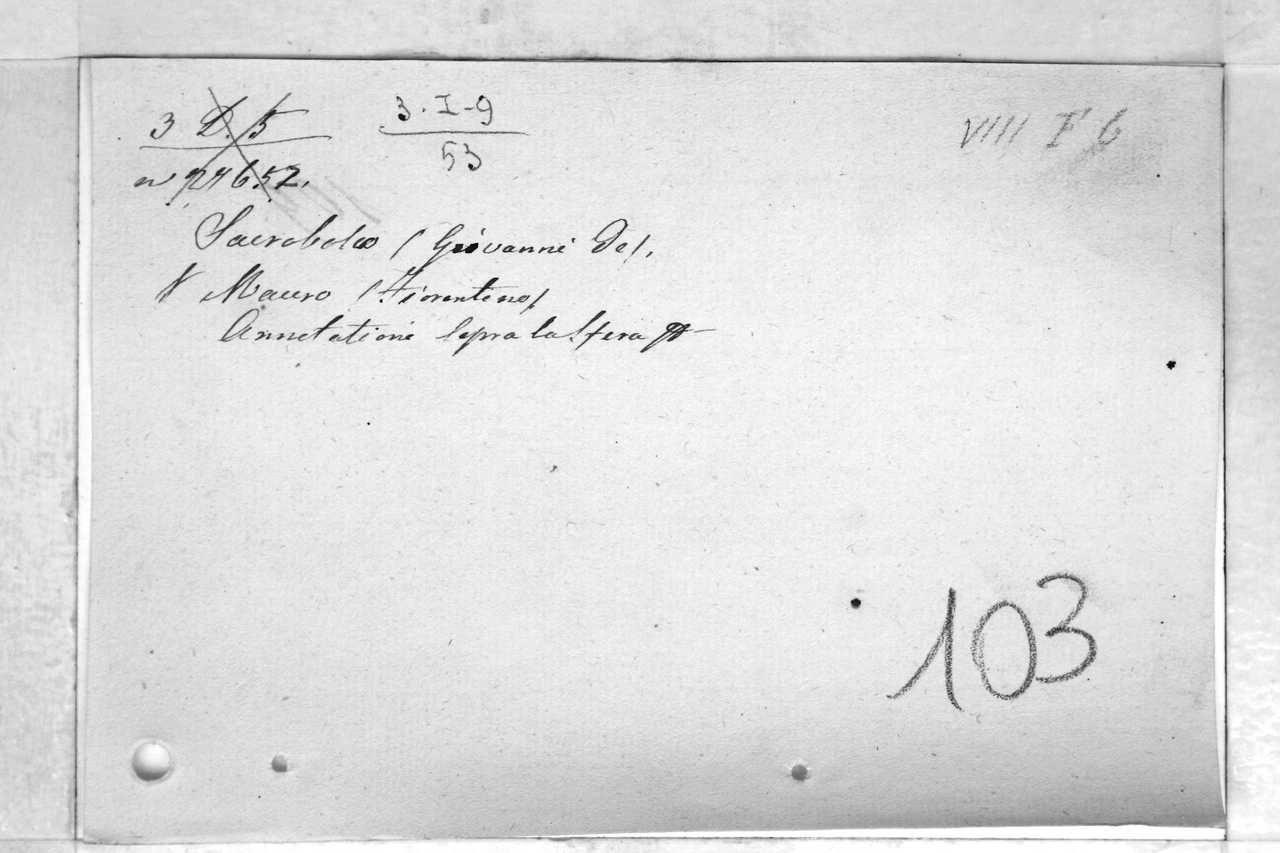 3 D. 5
3 - I - 9
53
VIII F 6
n 27652.
Sacrobosco (Giovanni de).
V Mauro (Fiorentino)
Annotationi sopra la Sfera
103